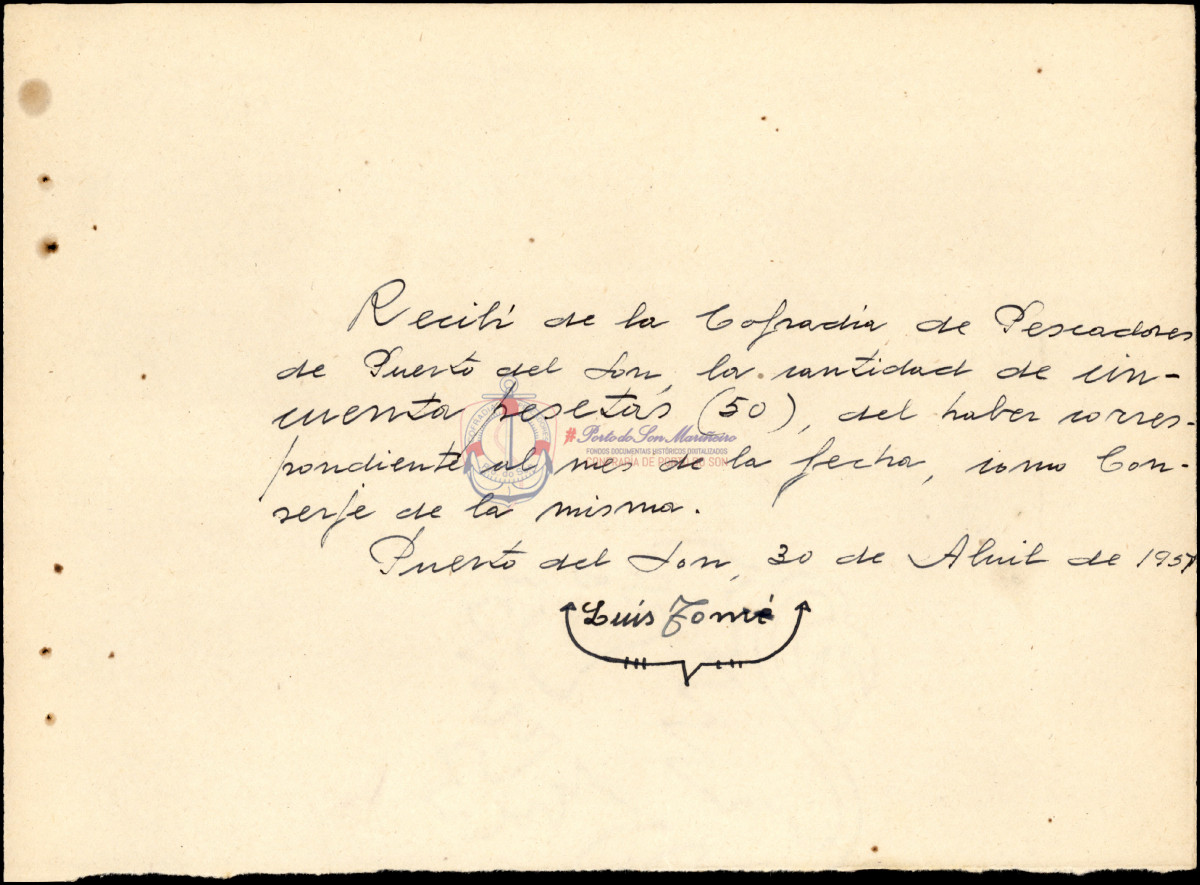 Recibí de la Cofradia de Pescadores
de Puerto del Son, la cantidad de cin-
cuenta pesetas (50), del haber corres-
pondiente al mes de la fecha, como Con-
serje de la misma.
Puerto del Son, 30 de Abril de 195
Luis Tomé
#Porto do Son Mariñeiro
FONDOS DOCUMENTAIS HISTÓRICOS DIXITALIZADOS
CONFRARÍA DE PORTO DO SON